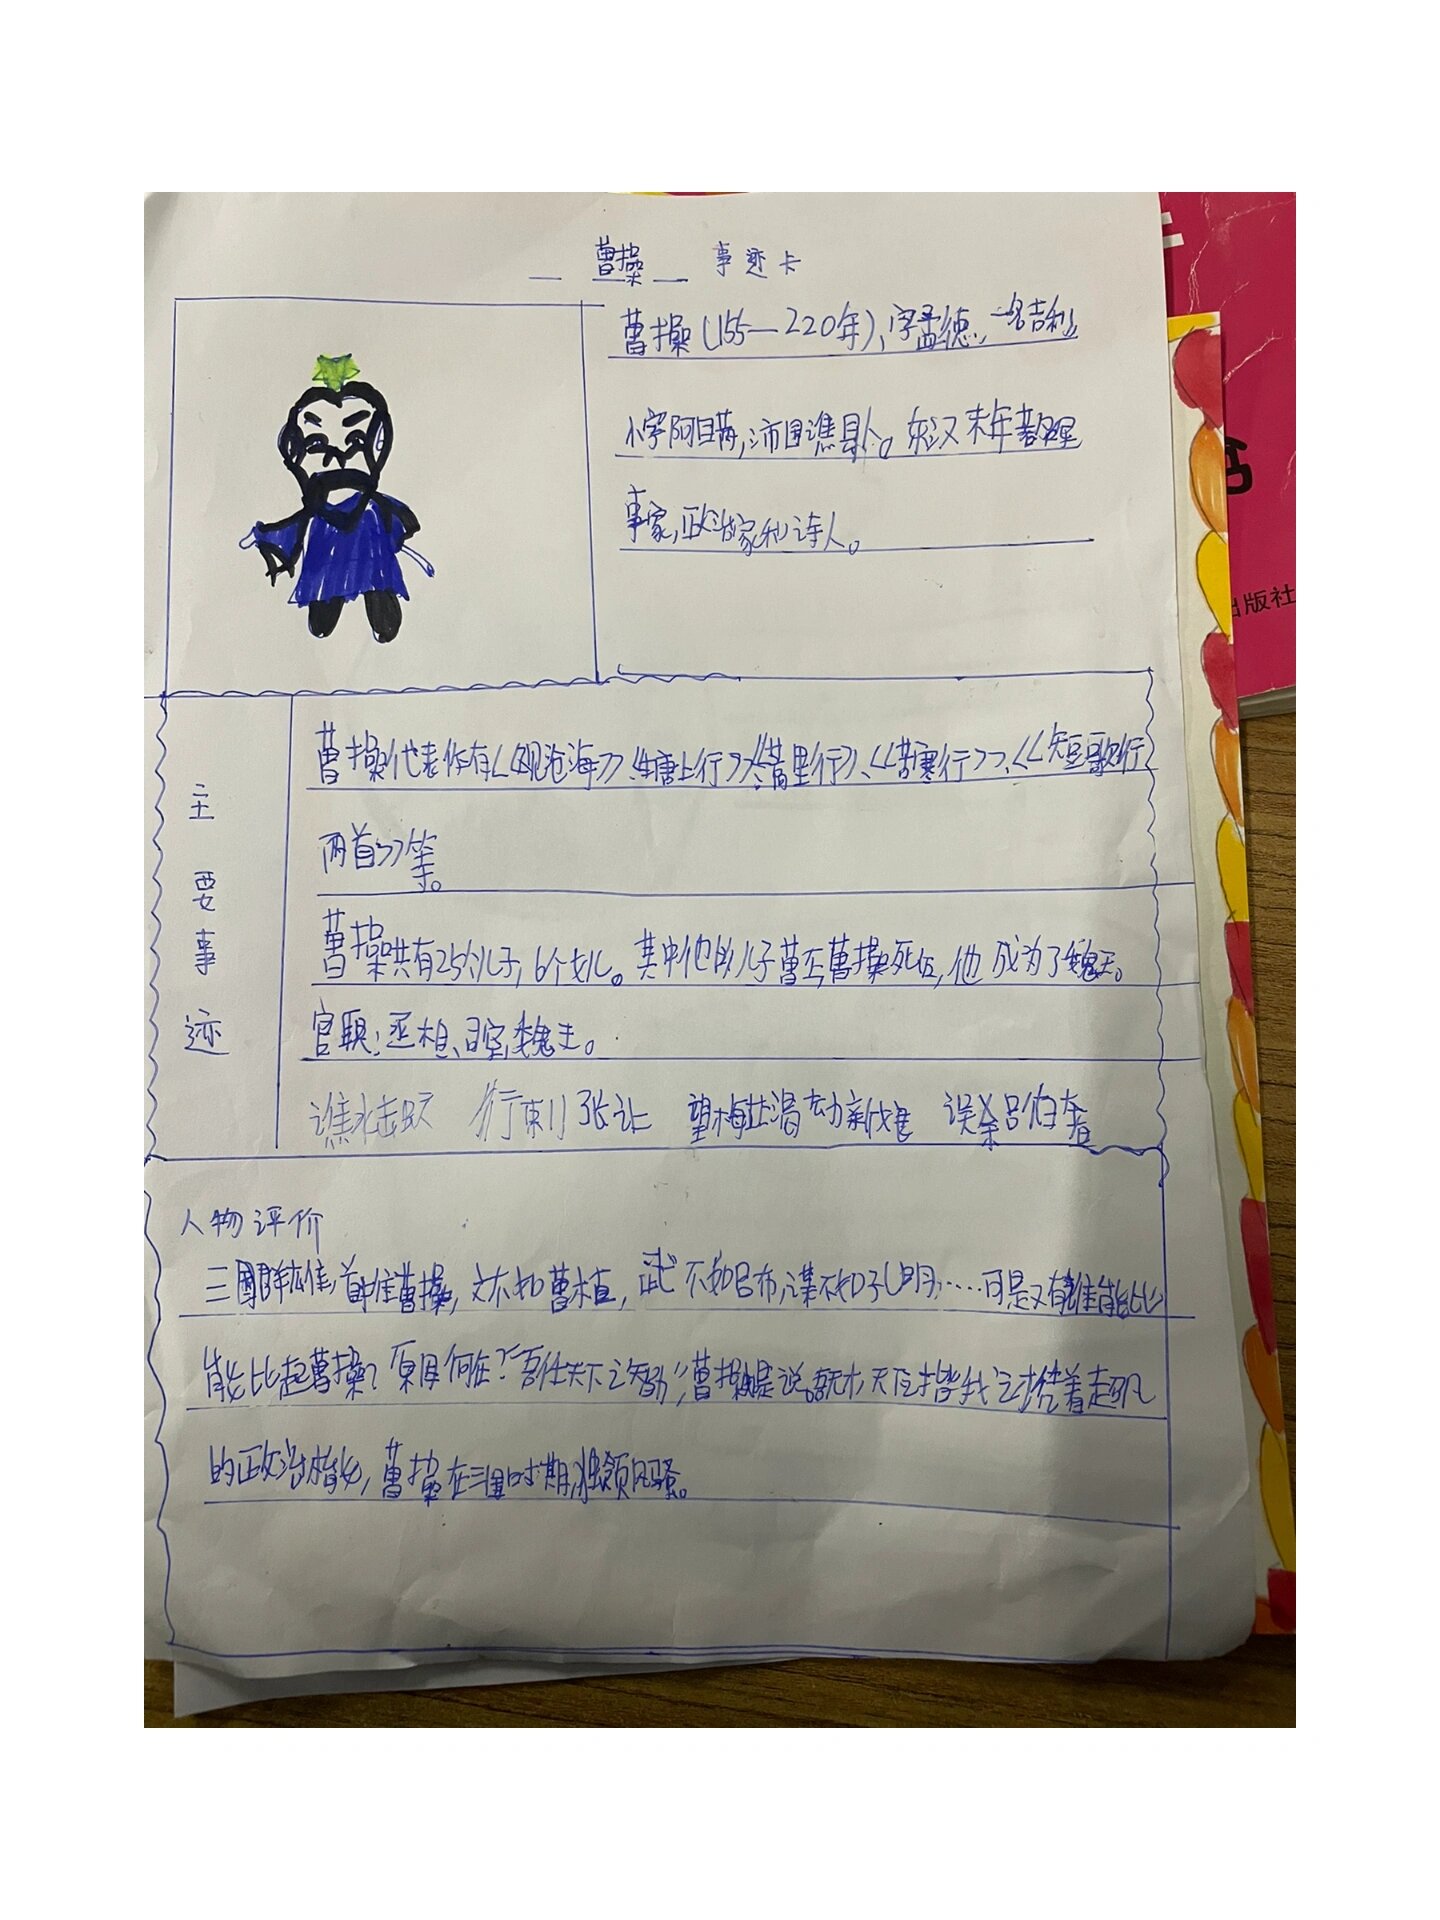 曹操 事迹卡
曹操(155—220年),字孟德,一名吉利,
小字阿瞒,沛国谯县人。东汉末年著名军
事家,政治家和诗人。
主要事迹
曹操代表作有《观沧海》《塘上行》《蒿里行》、《苦寒行》、《短歌行
两首》等。
曹操共有25个儿子,6个女儿。其中他的儿子曹丕,曹操死后,他成为了魏王。
官职:丞相、司空,魏王。
谯水击蛟 行刺张让 望梅止渴 误杀吕伯奢
人物评价
三國群雄,首推曹操,文不如曹植,武不如吕布,谋不如孔明……可是又有谁能比
能比起曹操?原因何在?"吾任天下之智力",曹操是说。
的政治才能,曹操在三国时期,独领风骚。
出版社